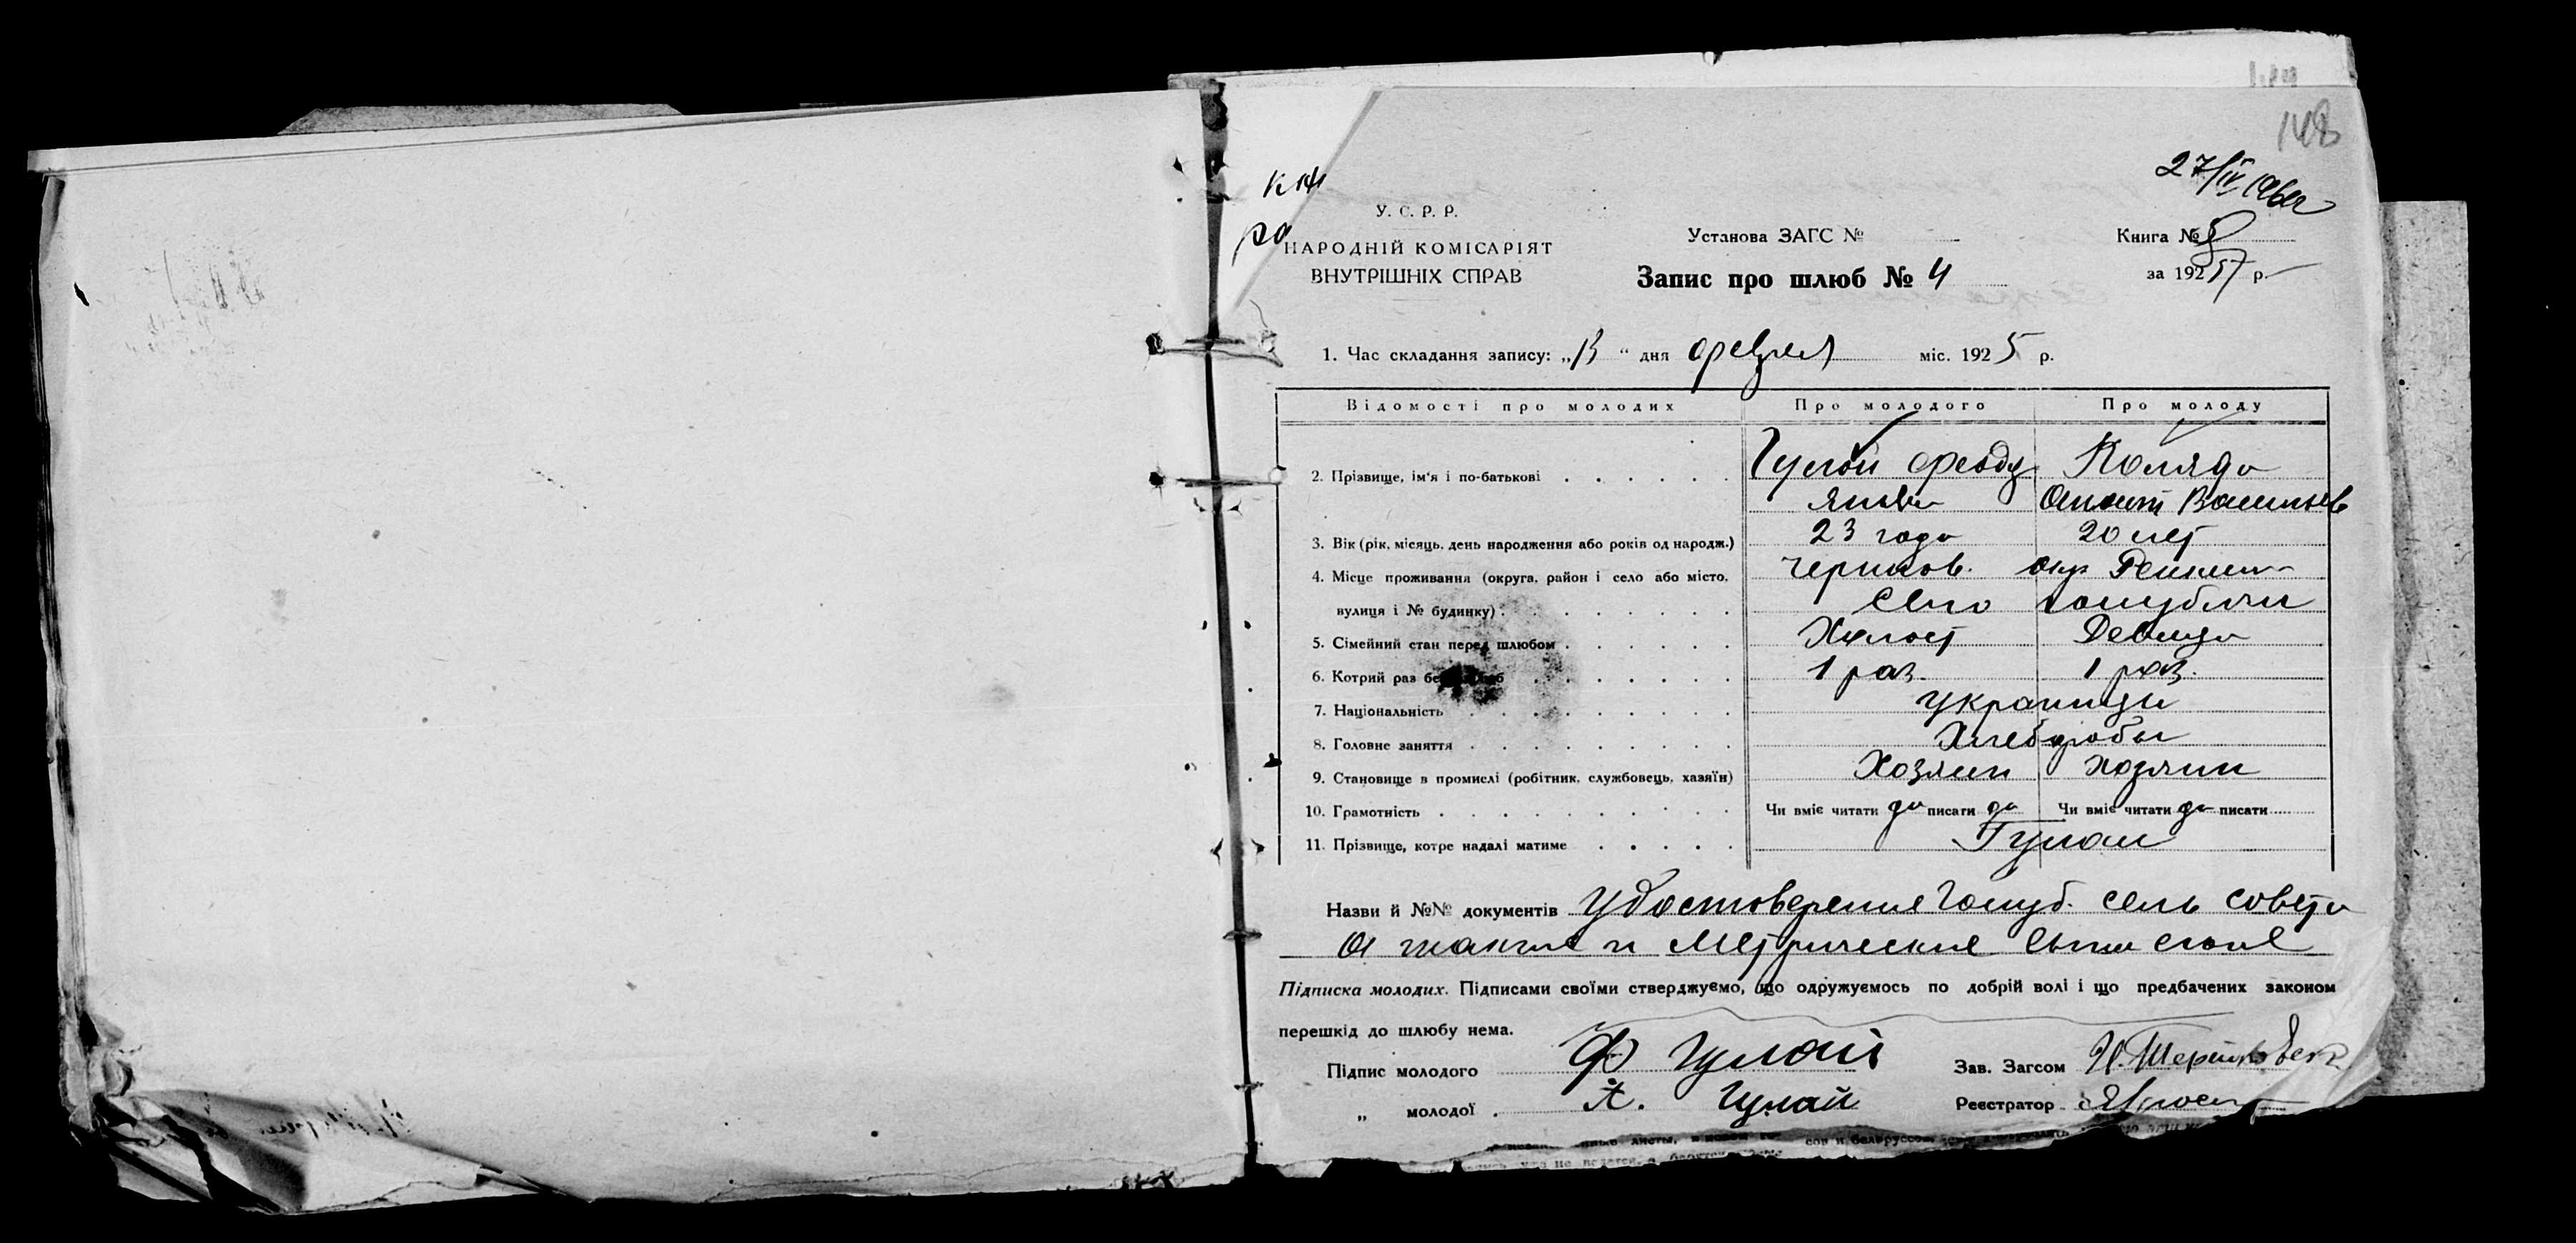 148
27/IV 196
У. С. Р. Р.
НАРОДНІЙ КОМІСАРІЯТ
ВНУТРІШНІХ СПРАВ
Установа ЗАГС №
Запис про шлюб № 4
Книга №
за 1925 р.
1. Час складання запису: „ “ дня февраля міс. 1925 р.
Відомості про молодих Про молодого Про молоду
2. Прізвище, ім'я і по-батькові Гулай Коляда
3. Вік (рік, місяць, день народження або років од народж.) 23 года 20 лет
4. Місце проживання (округа, район і село або місто, Чернигов. окр Репкин
вулиця і № будинку) Село Голубичи
5. Сімейний стан перед шлюбом Холост Девица
6. Котрий раз бере шлюб 1 раз. 1 раз.
7. Національність Украинцы
8. Головне заняття Хлеборобы
9. Становище в промислі (робітник, службовець, хазяїн) Хозяин хозяин
10. Грамотність Чи вміє читати да писати да Чи вміє читати да писати
11. Прізвище, котре надалі матиме Гулай
Назви й №№ документів Удостоверения Голуб. сель совета
и Метрические выписи
Підписка молодих. Підписами своїми стверджуємо, що одружуємось по добрій волі і що предбачених законом
перешкід до шлюбу нема.
Підпис молодого Ф Гулай Зав. Загсом
„ молодої А. Гулай Реєстратор